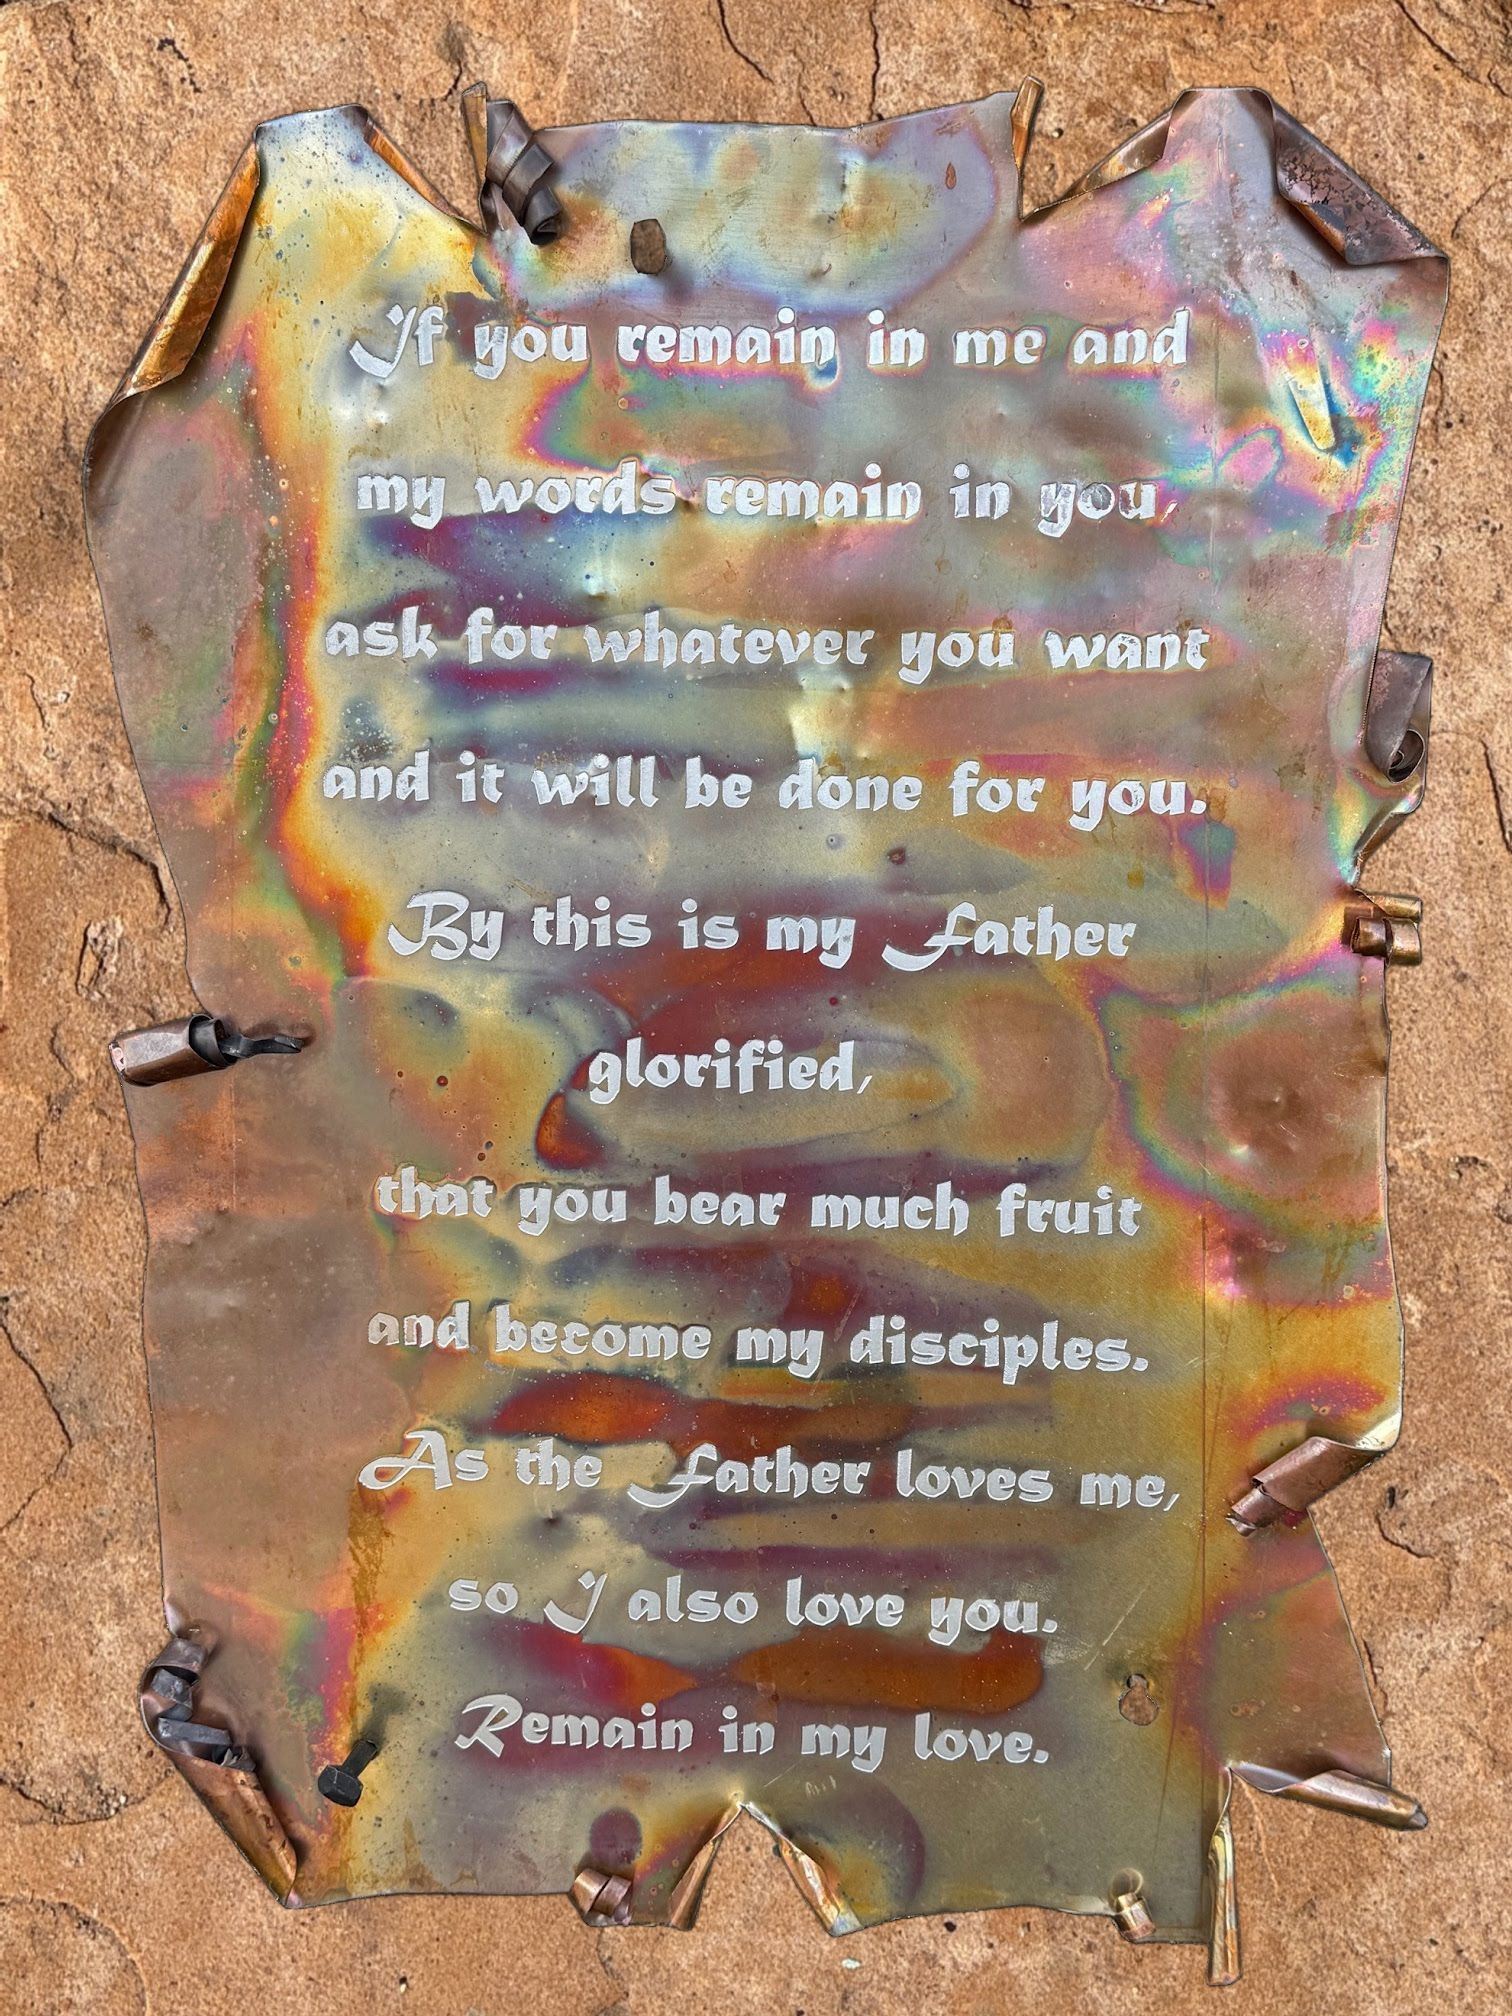 If you remain in me and
my words remain in you,
ask for whatever you want
and it will be done for you.
By this is my Father
glorified,
that you bear much fruit
and become my disciples.
As the Father loves me,
so I also love you.
Remain in my love.